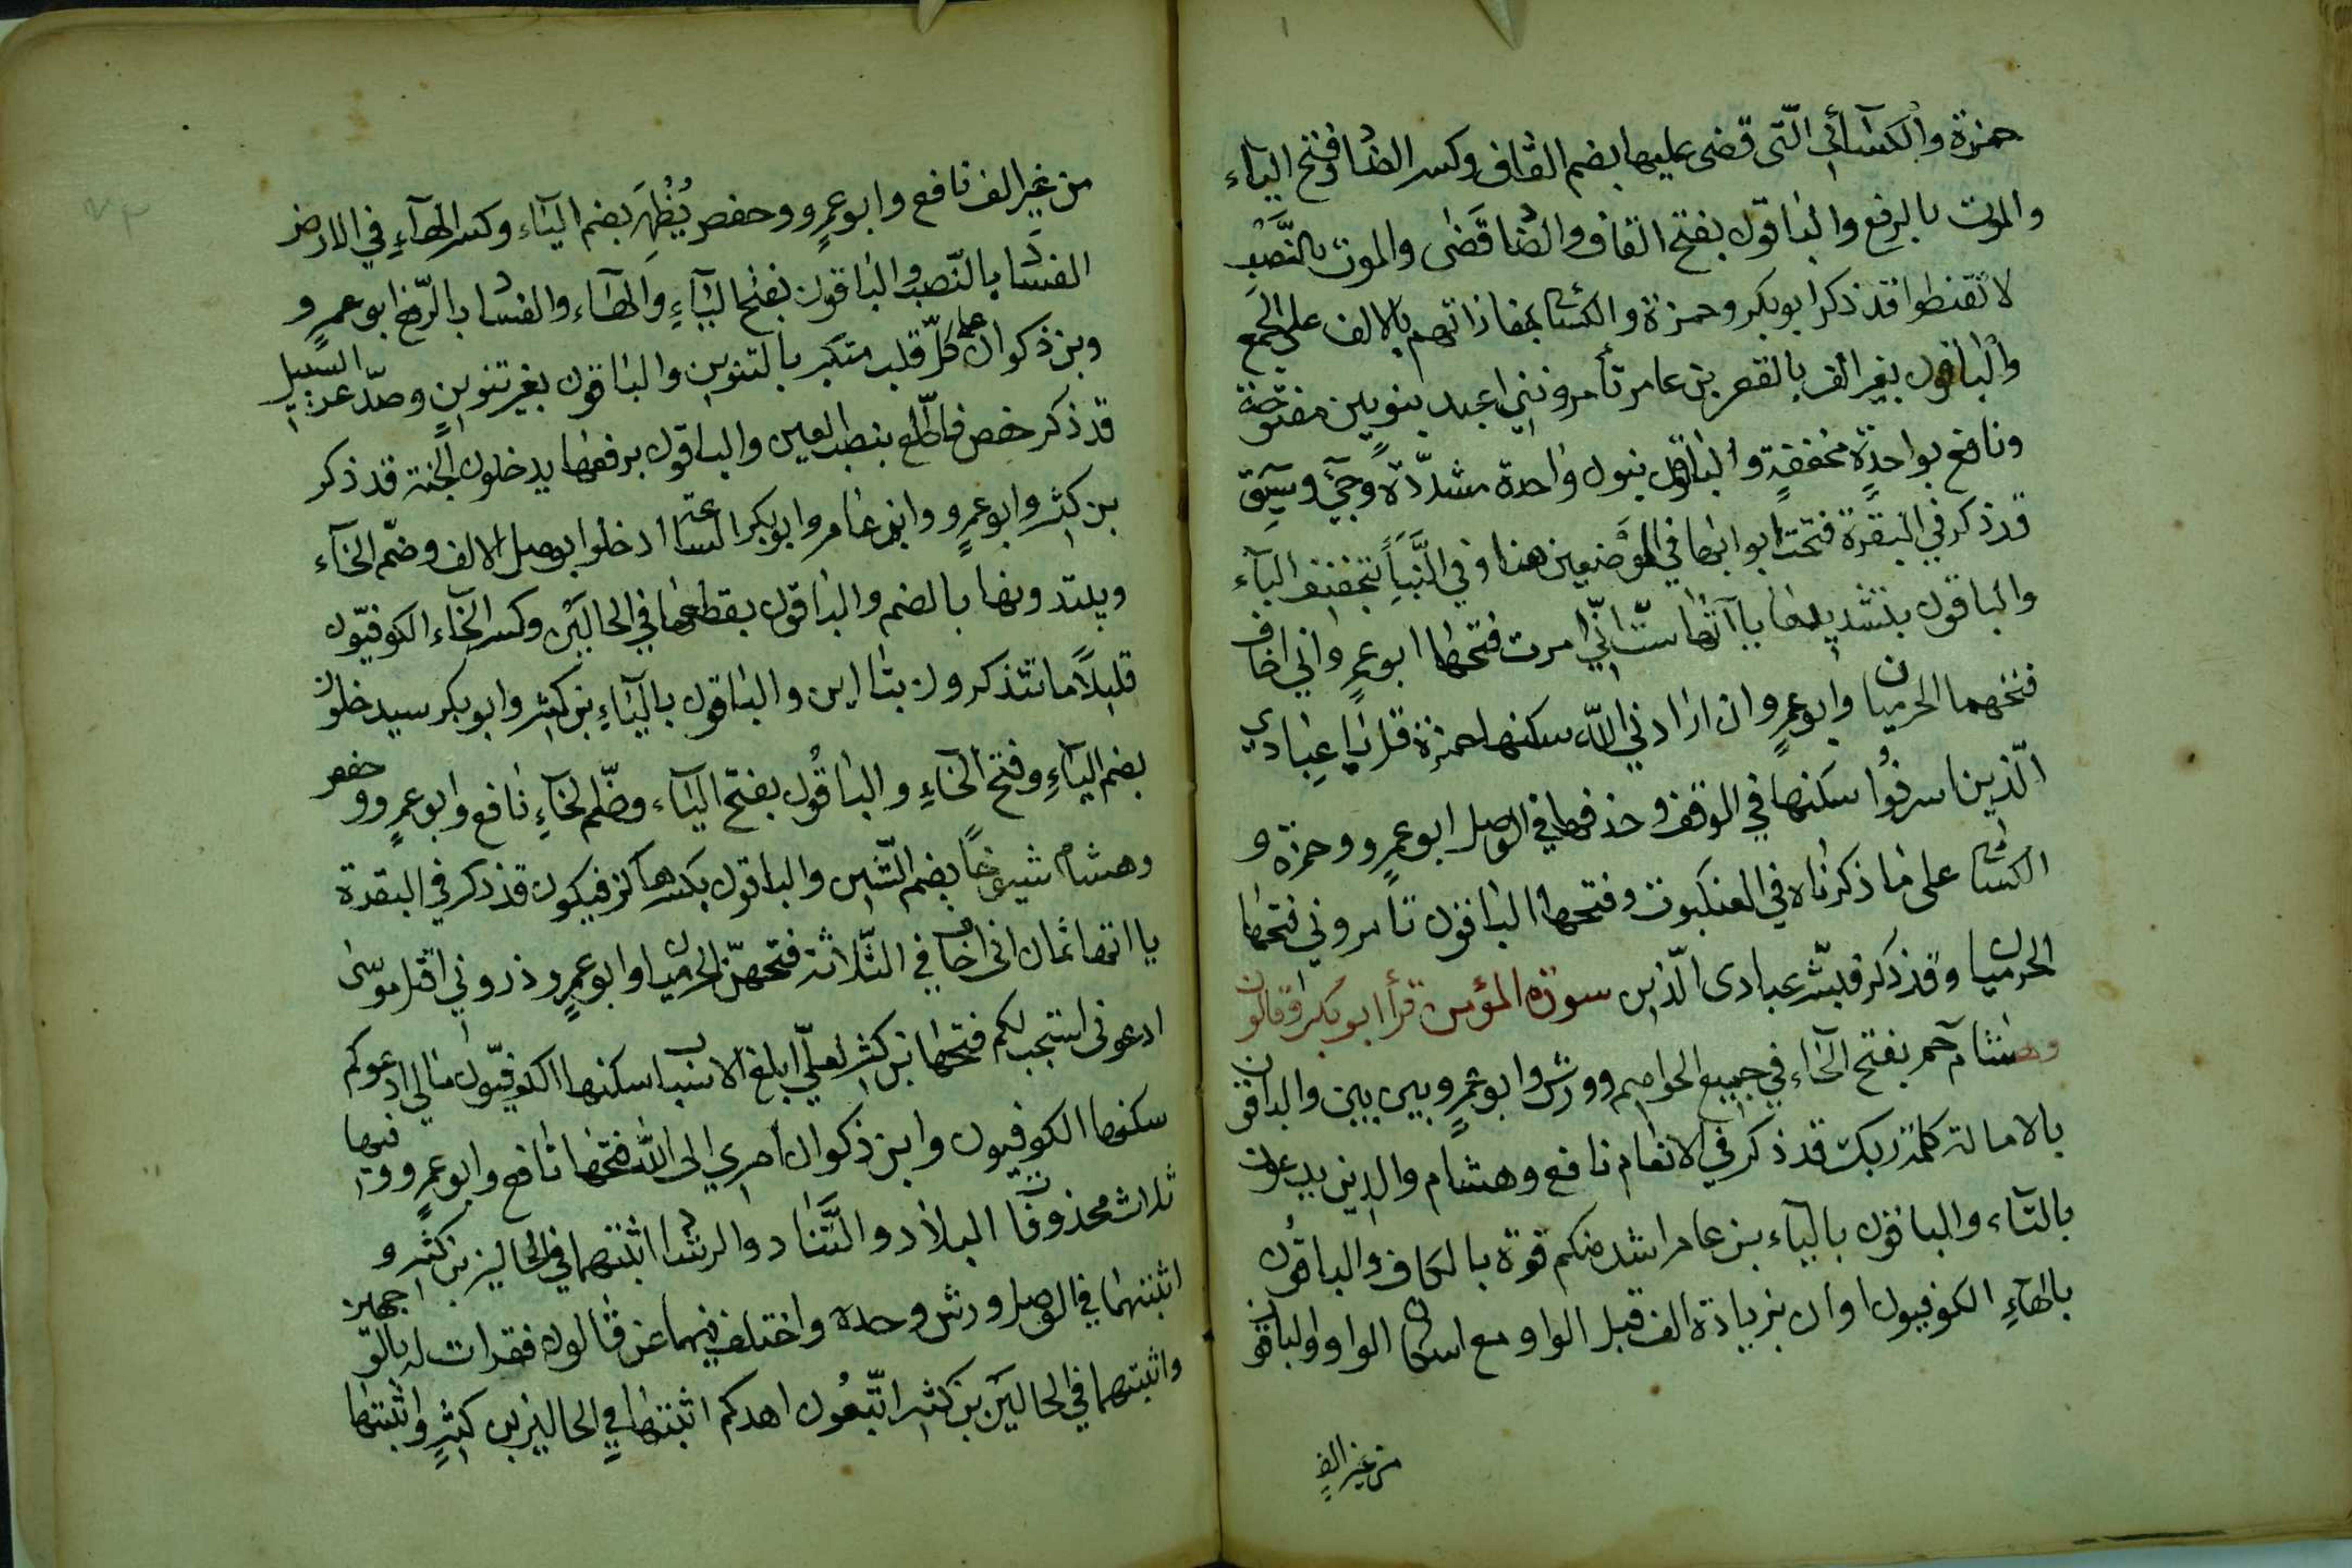 حمزة والكسآئي الّتى قضى عليها بضم القاف وكسر الضاد وفتح اليآء
والموت بالرفع والباقون بفتح القاف والضاد قَضى والموت بالنَّصْب
لا تقنطوا قد ذكر ابوبكر وحمزة والكسائى بمفازاتهم بالالف على الجمع
والباقون بغير الف بالقصر بن عامر تأمرونني اعبد بنونين مفتوحة
ونافع بواحدةٍ مخففةٍ والباقون بنون واحدة مشدّدة وجئ وسيق
قد ذكر في البقرة فتحت ابوابها في الموضعين هنا وفي النَّبَأ بتخفيف التآء
والباقون بتشديدها ياآتها ستّ انّي امرت فتحها ابو عمرٍو اني اخاف
فتحهما الحرميان وابو عمرٍو ان ارادني الله سكنها حمزة قل يا عبادي
الّذين اسرفُوا سكنها في الوقف وحذفها في الوصل ابو عمرٍو وحمزة و
الكسائى على ما ذكرناه في العنكبوت وفتحها الباقون تأمروني فتحها
الحرميان وقد ذكر فبشّر عبادى الّذين سورة المؤمن قرأ ابوبكر وقالون
وهشام حم بفتح الحاء في جميع الحواميم وورش وابو عمرٍو بين بين والباقون
بالامالة كلمة ربك قد ذكر في الانعام نافع وهشام والذين يدعون
بالتاء والباقون بالياء بن عامر اشد منكم قوة بالكاف والباقون
بالهآءِ الكوفيون او ان بزيادة الف قبل الواو مع اسكان الواو والباقون
من غير الف
من غير الف نافع وابو عمرٍو وحفص يُظْهِرَ بضم اليآء وكسر الهآءِ في الارض
الفسادَ بالنّصب والباقون بفتح اليآءِ والهاء والفساد بالرّفع ابو عمرٍو
وبن ذكوان على كلّ قلب متكبر بالتنوين والباقون بغير تنوين وصدّ عن السبيل
قد ذكر حفص فاطّلع بنصب العين والباقون برفعها يدخلون الجنة قد ذكر
بن كثير وابو عمرٍو وابن عامر وابوبكر الساعة ادخلوا بوصل الالف وضمّ الخآء
ويبتدونها بالضم والباقون بقطعها في الحالين وكسر الخآء الكوفيّون
قليلاً ما تتذكرون بتااين والباقون باليآءِ بن كثير وابوبكر سيدخلون
بضم اليآءِ وفتح الخاءِ والباقُون بفتح اليآء وضمّ الخآءِ نافع وابو عمرٍو وحفص
وهشام شيوخاً بضم الشّين والباقون بكسرها كن فيكون قد ذكر في البقرة
ياءاتها ثمان انى اخاف في الثّلاثة فتحهنّ الحرميان وابو عمرٍو ذروني اقتل موسى
ادعونى استجب لكم فتحها بن كثير لعلّي ابلغ الاسباب سكنها الكوفيّون مالي ادعوكم
سكنها الكوفيون وابن ذكوان امري الى الله فتحها نافع وابو عمرٍو وفيها
ثلاث محذوفات البلاد والتَّناد والرشاد اثبتهما في الحالين بن كثير و
اثبتهما في الوصل ورش وحده واختلف فيهما عن قالون فقرات له بالوجهين
واثبتهما في الحالين بن كثير اتّبعُون اهدكم اثبتها في الحالين بن كثيرٍ واثبتها